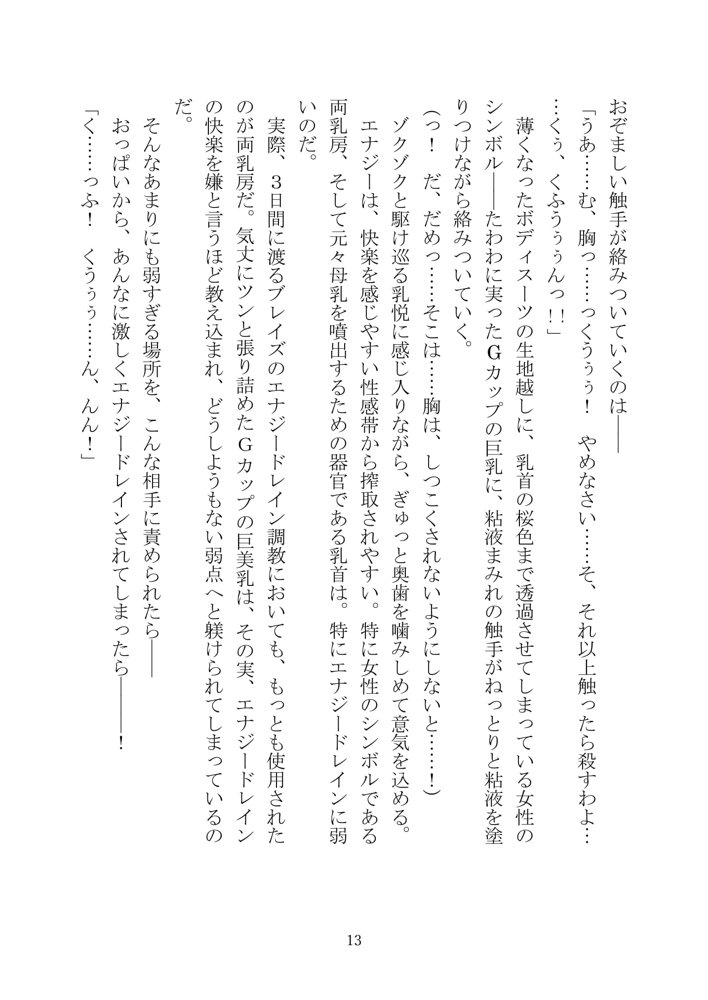 おぞましい触手が絡みついていくのは――
「うあ……む、胸っ……っくうぅぅ！　やめなさい……そ、それ以上触ったら殺すわよ…
…くぅ、くふうぅぅんっ!!」
　薄くなったボディスーツの生地越しに、乳首の桜色まで透過させてしまっている女性の
シンボル――たわわに実ったＧカップの巨乳に、粘液まみれの触手がねっとりと粘液を塗
りつけながら絡みついていく。
（っ！　だ、だめっ……そこは……胸は、しつこくされないようにしないと……！）
　ゾクゾクと駆け巡る乳悦に感じ入りながら、ぎゅっと奥歯を噛みしめて意気を込める。
　エナジーは、快楽を感じやすい性感帯から搾取されやすい。特に女性のシンボルである
両乳房、そして元々母乳を噴出するための器官である乳首は。特にエナジードレインに弱
いのだ。
　実際、３日間に渡るブレイズのエナジードレイン調教においても、もっとも使用された
のが両乳房だ。気丈にツンと張り詰めたＧカップの巨美乳は、その実、エナジードレイン
の快楽を嫌と言うほど教え込まれ、どうしようもない弱点へと躾けられてしまっているの
だ。
　そんなあまりにも弱すぎる場所を、こんな相手に責められたら――
　おっぱいから、あんなに激しくエナジードレインされてしまったら―――！
「く……っふ！　くうぅぅ……ん、んん！」
13